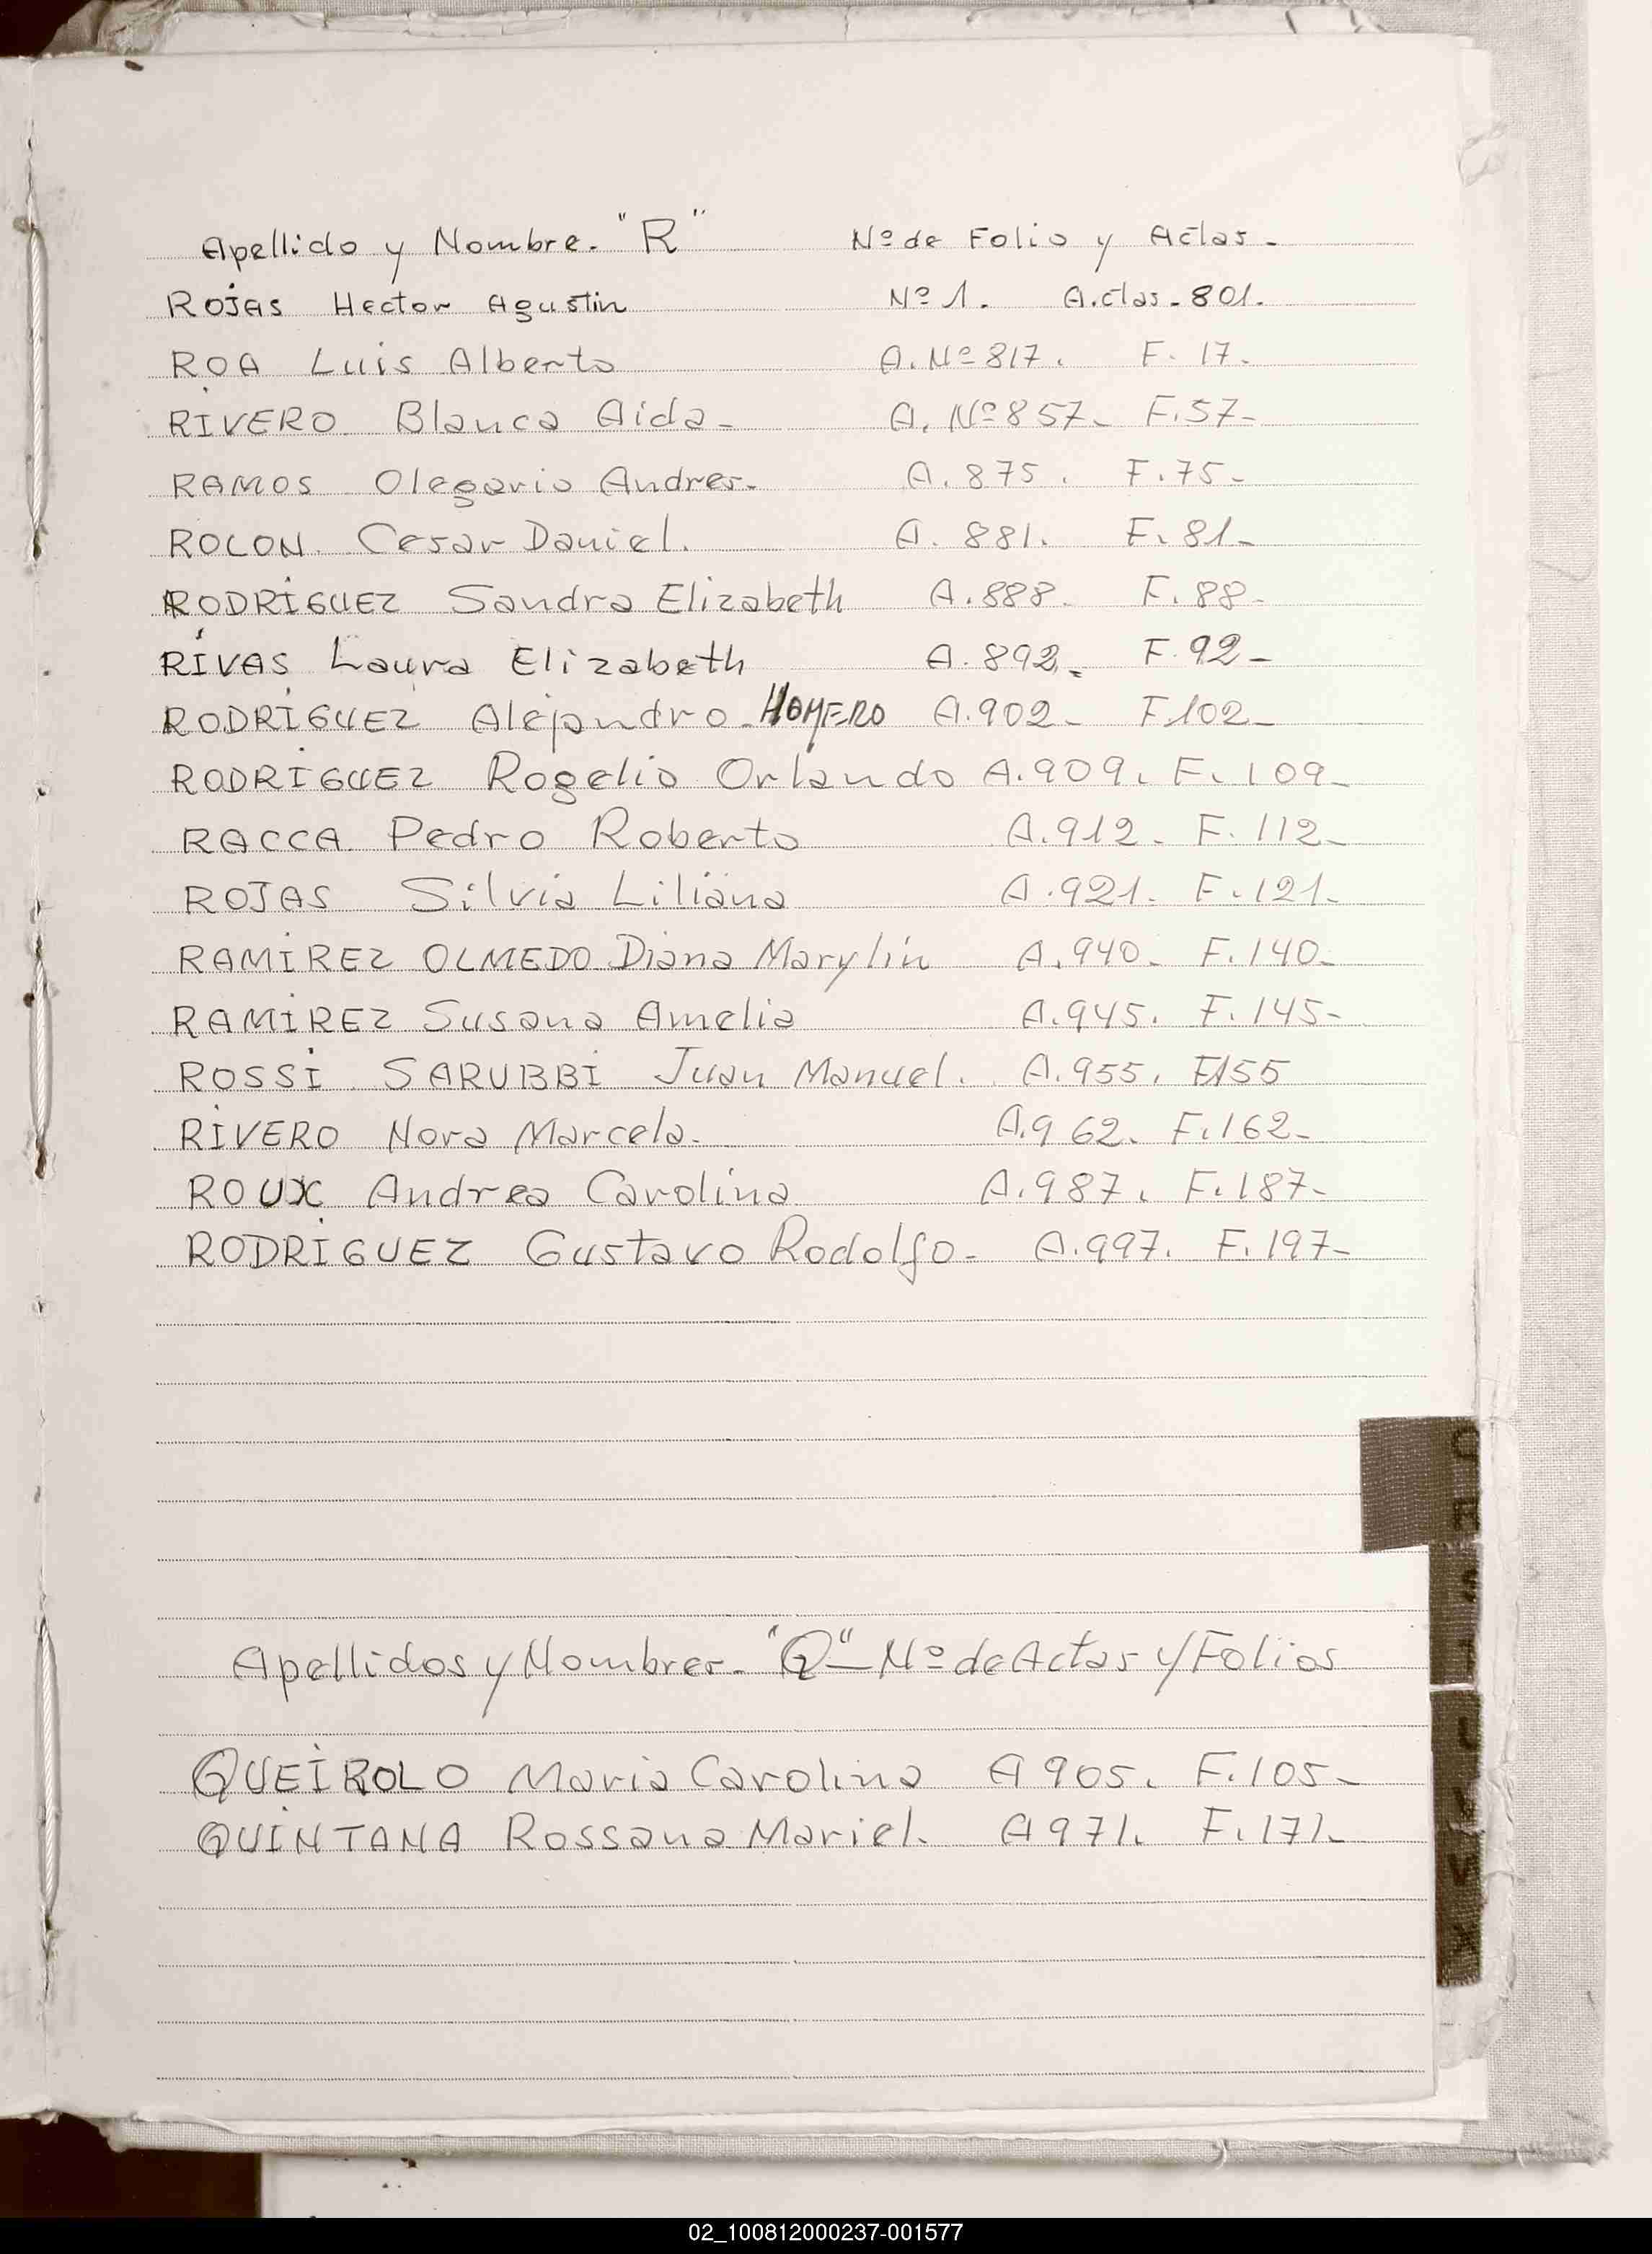 Apellido y Nombre. "R" Nº de Folio y Actas.
ROJAS Hector Agustin Nº 1. Actas. 801.
ROA Luis Alberto A. Nº 817. F. 17.
RIVERO Blanca Aida. A. Nº 857. F. 57.
RAMOS Olegario Andres. A. 875. F. 75.
ROLON. Cesar Daniel. A. 881. F. 81.
RODRIGUEZ Sandra Elizabeth A. 888. F. 88.
RIVAS Laura Elizabeth A. 892. F. 92.
RODRIGUEZ Alejandro HOMERO A. 902. F. 102.
RODRIGUEZ Rogelio Orlando A. 909. F. 109.
RACCA Pedro Roberto A. 912. F. 112.
ROJAS Silvia Liliana A. 921. F. 121.
RAMIREZ OLMEDO Diana Marylin A. 940. F. 140.
RAMIREZ Susana Amelia A. 945. F. 145.
ROSSI SARUBBI Juan Manuel. A. 955. F. 155
RIVERO Nora Marcela. A. 962. F. 162.
ROUX Andrea Carolina A. 987. F. 187.
RODRIGUEZ Gustavo Rodolfo. A. 997. F. 197.
Apellidos y Nombres. "Q" Nº de Actas y Folios
QUEIROLO Maria Carolina A 905. F. 105.
QUINTANA Rossana Mariel. A 971. F. 171.
02_100812000237-001577